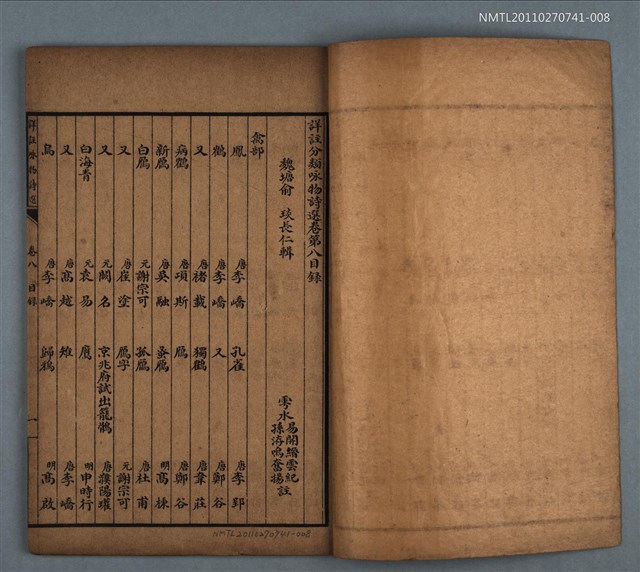 NMTL20110270741-008
詳註分類咏物詩選卷第八目錄
魏塘俞 琰長仁輯
雩水
易開縉雲紀
孫洊鳴奮揚註
禽部
鳳 唐李嶠 孔雀 唐李郢
鶴 唐李嶠 又 唐鄭谷
又 唐褚載 獨鶴 唐韋莊
病鶴 唐項斯 鴈 唐鄭谷
新鴈 唐吳融 孤鴈 明高棟
白鴈 元謝宗可 孤鴈 唐杜甫
又 唐崔塗 鴈字 元謝宗可
又 元闕名 京兆府試出籠鶻 唐濮陽瓘
白海青 元袁易 鷹 明申時行
又 唐高越 雉 唐李嶠
烏 唐李嶠 歸鴉 明高啟
詳註咏物詩選
卷八 目錄
一
NMTL20110270741-008